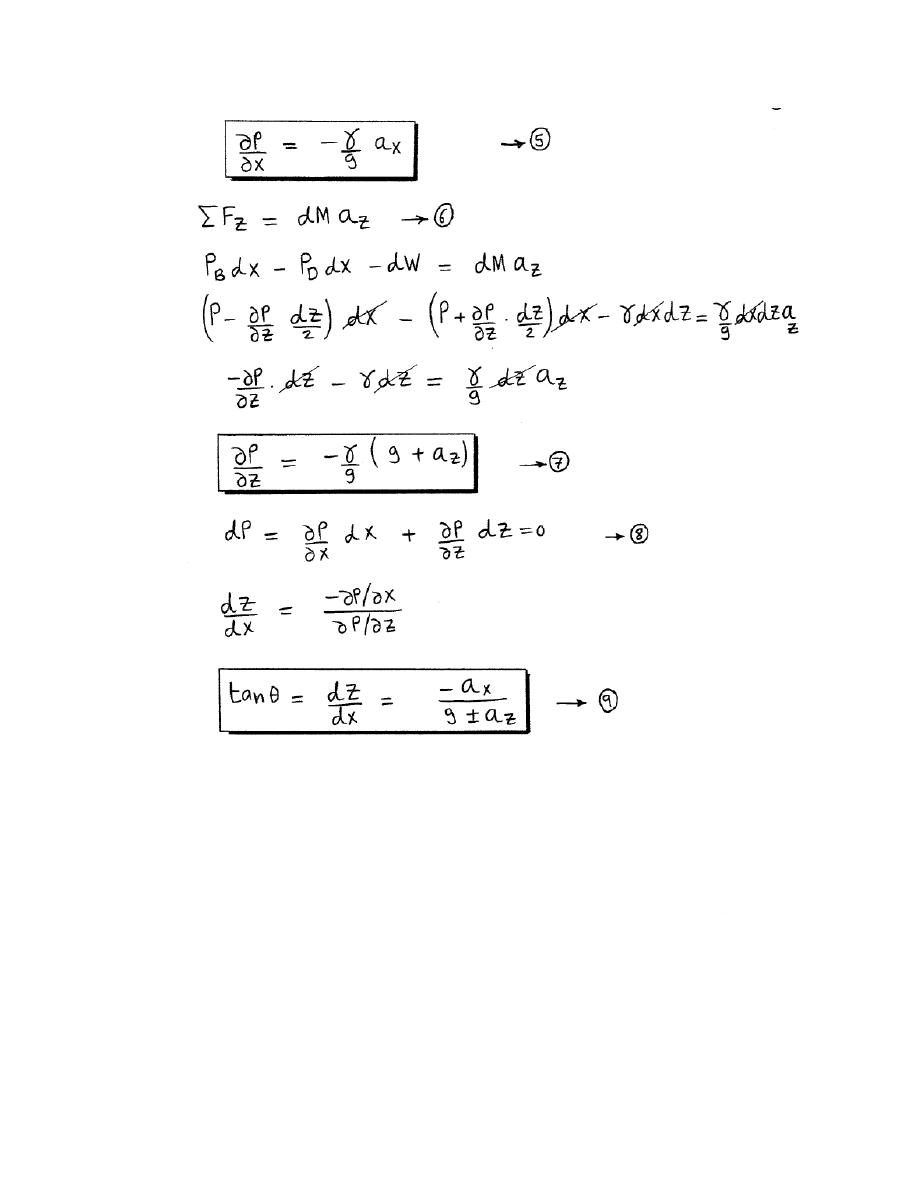 ∂P/∂x = -γ/g ax → ⑤
ΣFz = dM az → ⑥
PB dx - PD dx - dW = dM az
(P - ∂P/∂z dz/2) dx - (P + ∂P/∂z · dz/2) dx - γdxdz = γ/g dxdz az
-∂P/∂z · dz - γdz = γ/g dz az
∂P/∂z = -γ/g (g + az) → ⑦
dP = ∂P/∂x dx + ∂P/∂z dz = 0 → ⑧
dz/dx = -∂P/∂x / ∂P/∂z
tanθ = dz/dx = -ax / g ± az → ⑨